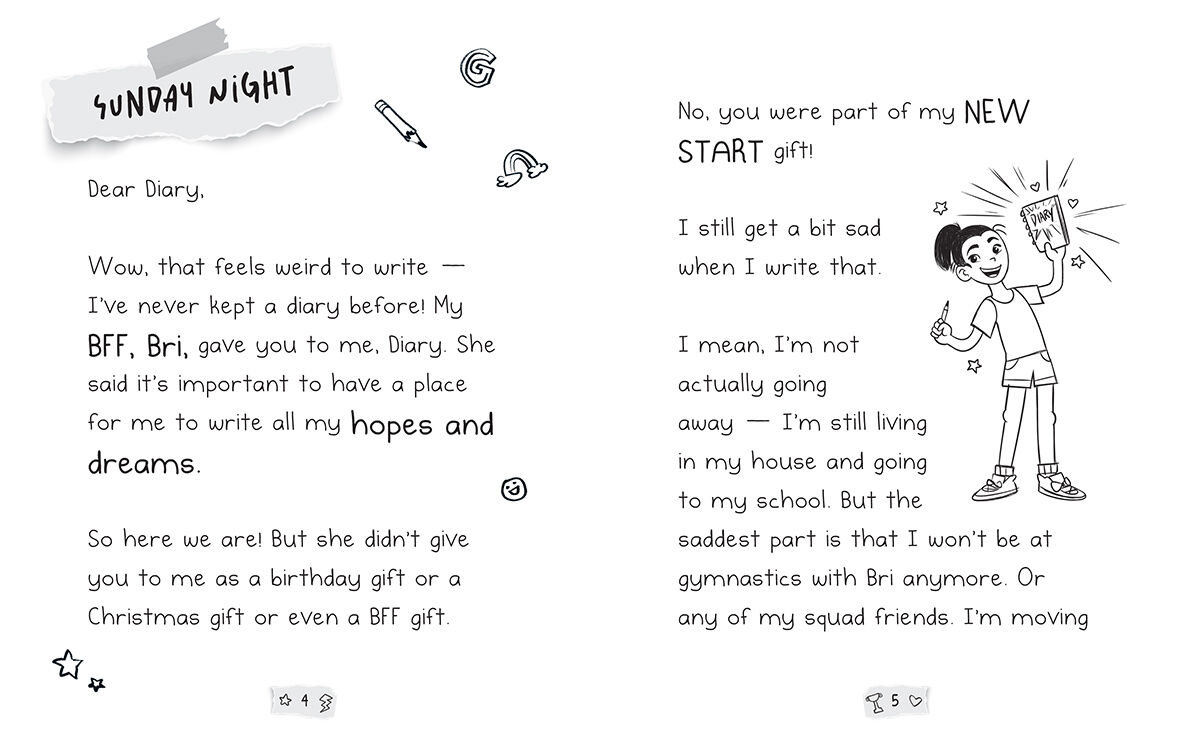 SUNDAY NiGHT
G
Dear Diary,
Wow, that feels weird to write —
I've never kept a diary before! My
BFF, Bri, gave you to me, Diary. She
said it's important to have a place
for me to write all my hopes and
dreams.
So here we are! But she didn't give
you to me as a birthday gift or a
Christmas gift or even a BFF gift.
4
No, you were part of my NEW
START gift!
DIARY
I still get a bit sad
when I write that.
I mean, I'm not
actually going
away — I'm still living
in my house and going
to my school. But the
saddest part is that I won't be at
gymnastics with Bri anymore. Or
any of my squad friends. I'm moving
5